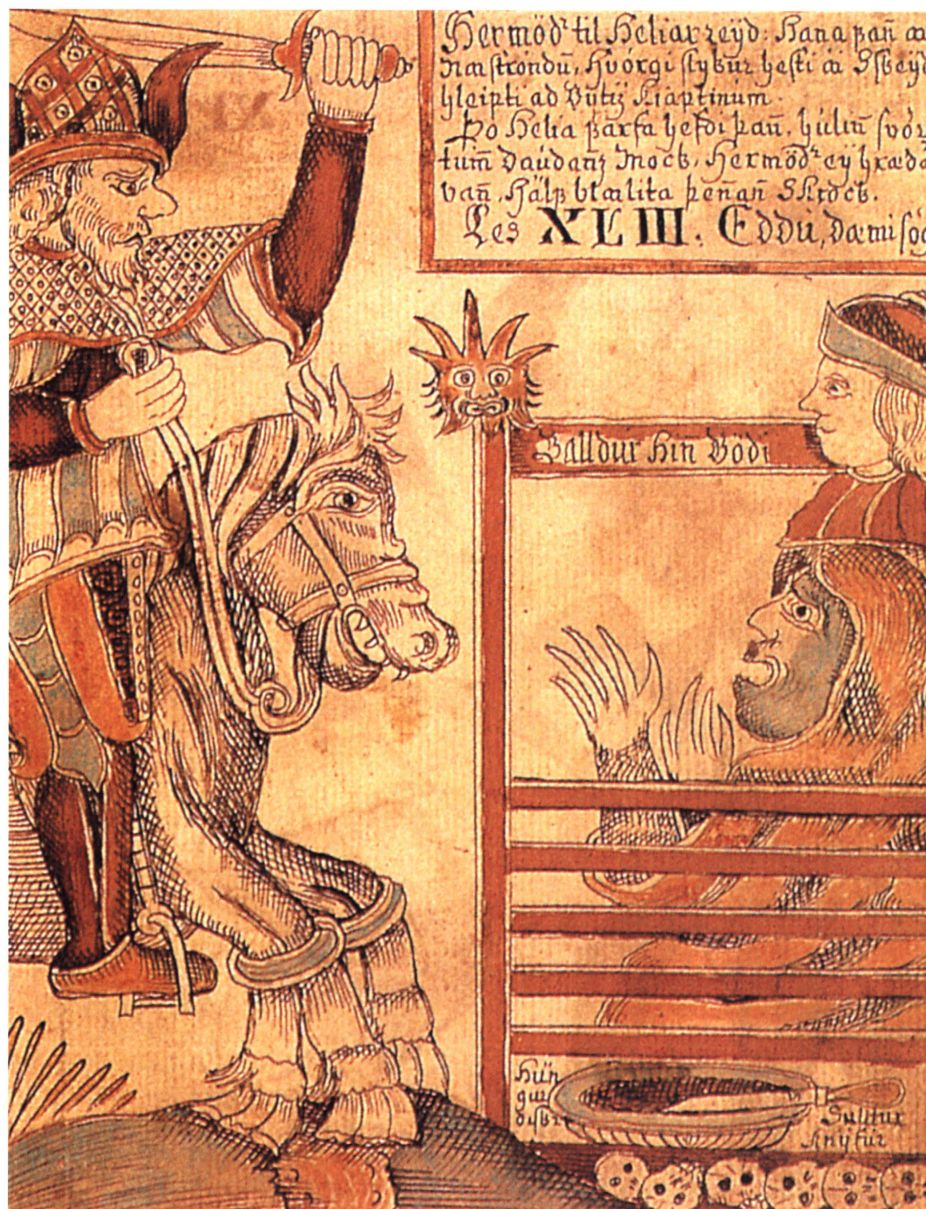 Hermöd^r til Heliar reyd: Hana þan̄ a
Nástrondū, Hvörgi stybur hesti á
hleipti ad Kiaptinum.
Þo Helia þarfa hefdi þan̄, hulin svör
tum̄ daudans Mock, Hermöd^r ey hræd
van̄, Hälf þenan̄
Les XLIII. Eddu, dæmisög
Balldur hin Godi
Hun
gur
diskr
Sulltur
knyfur